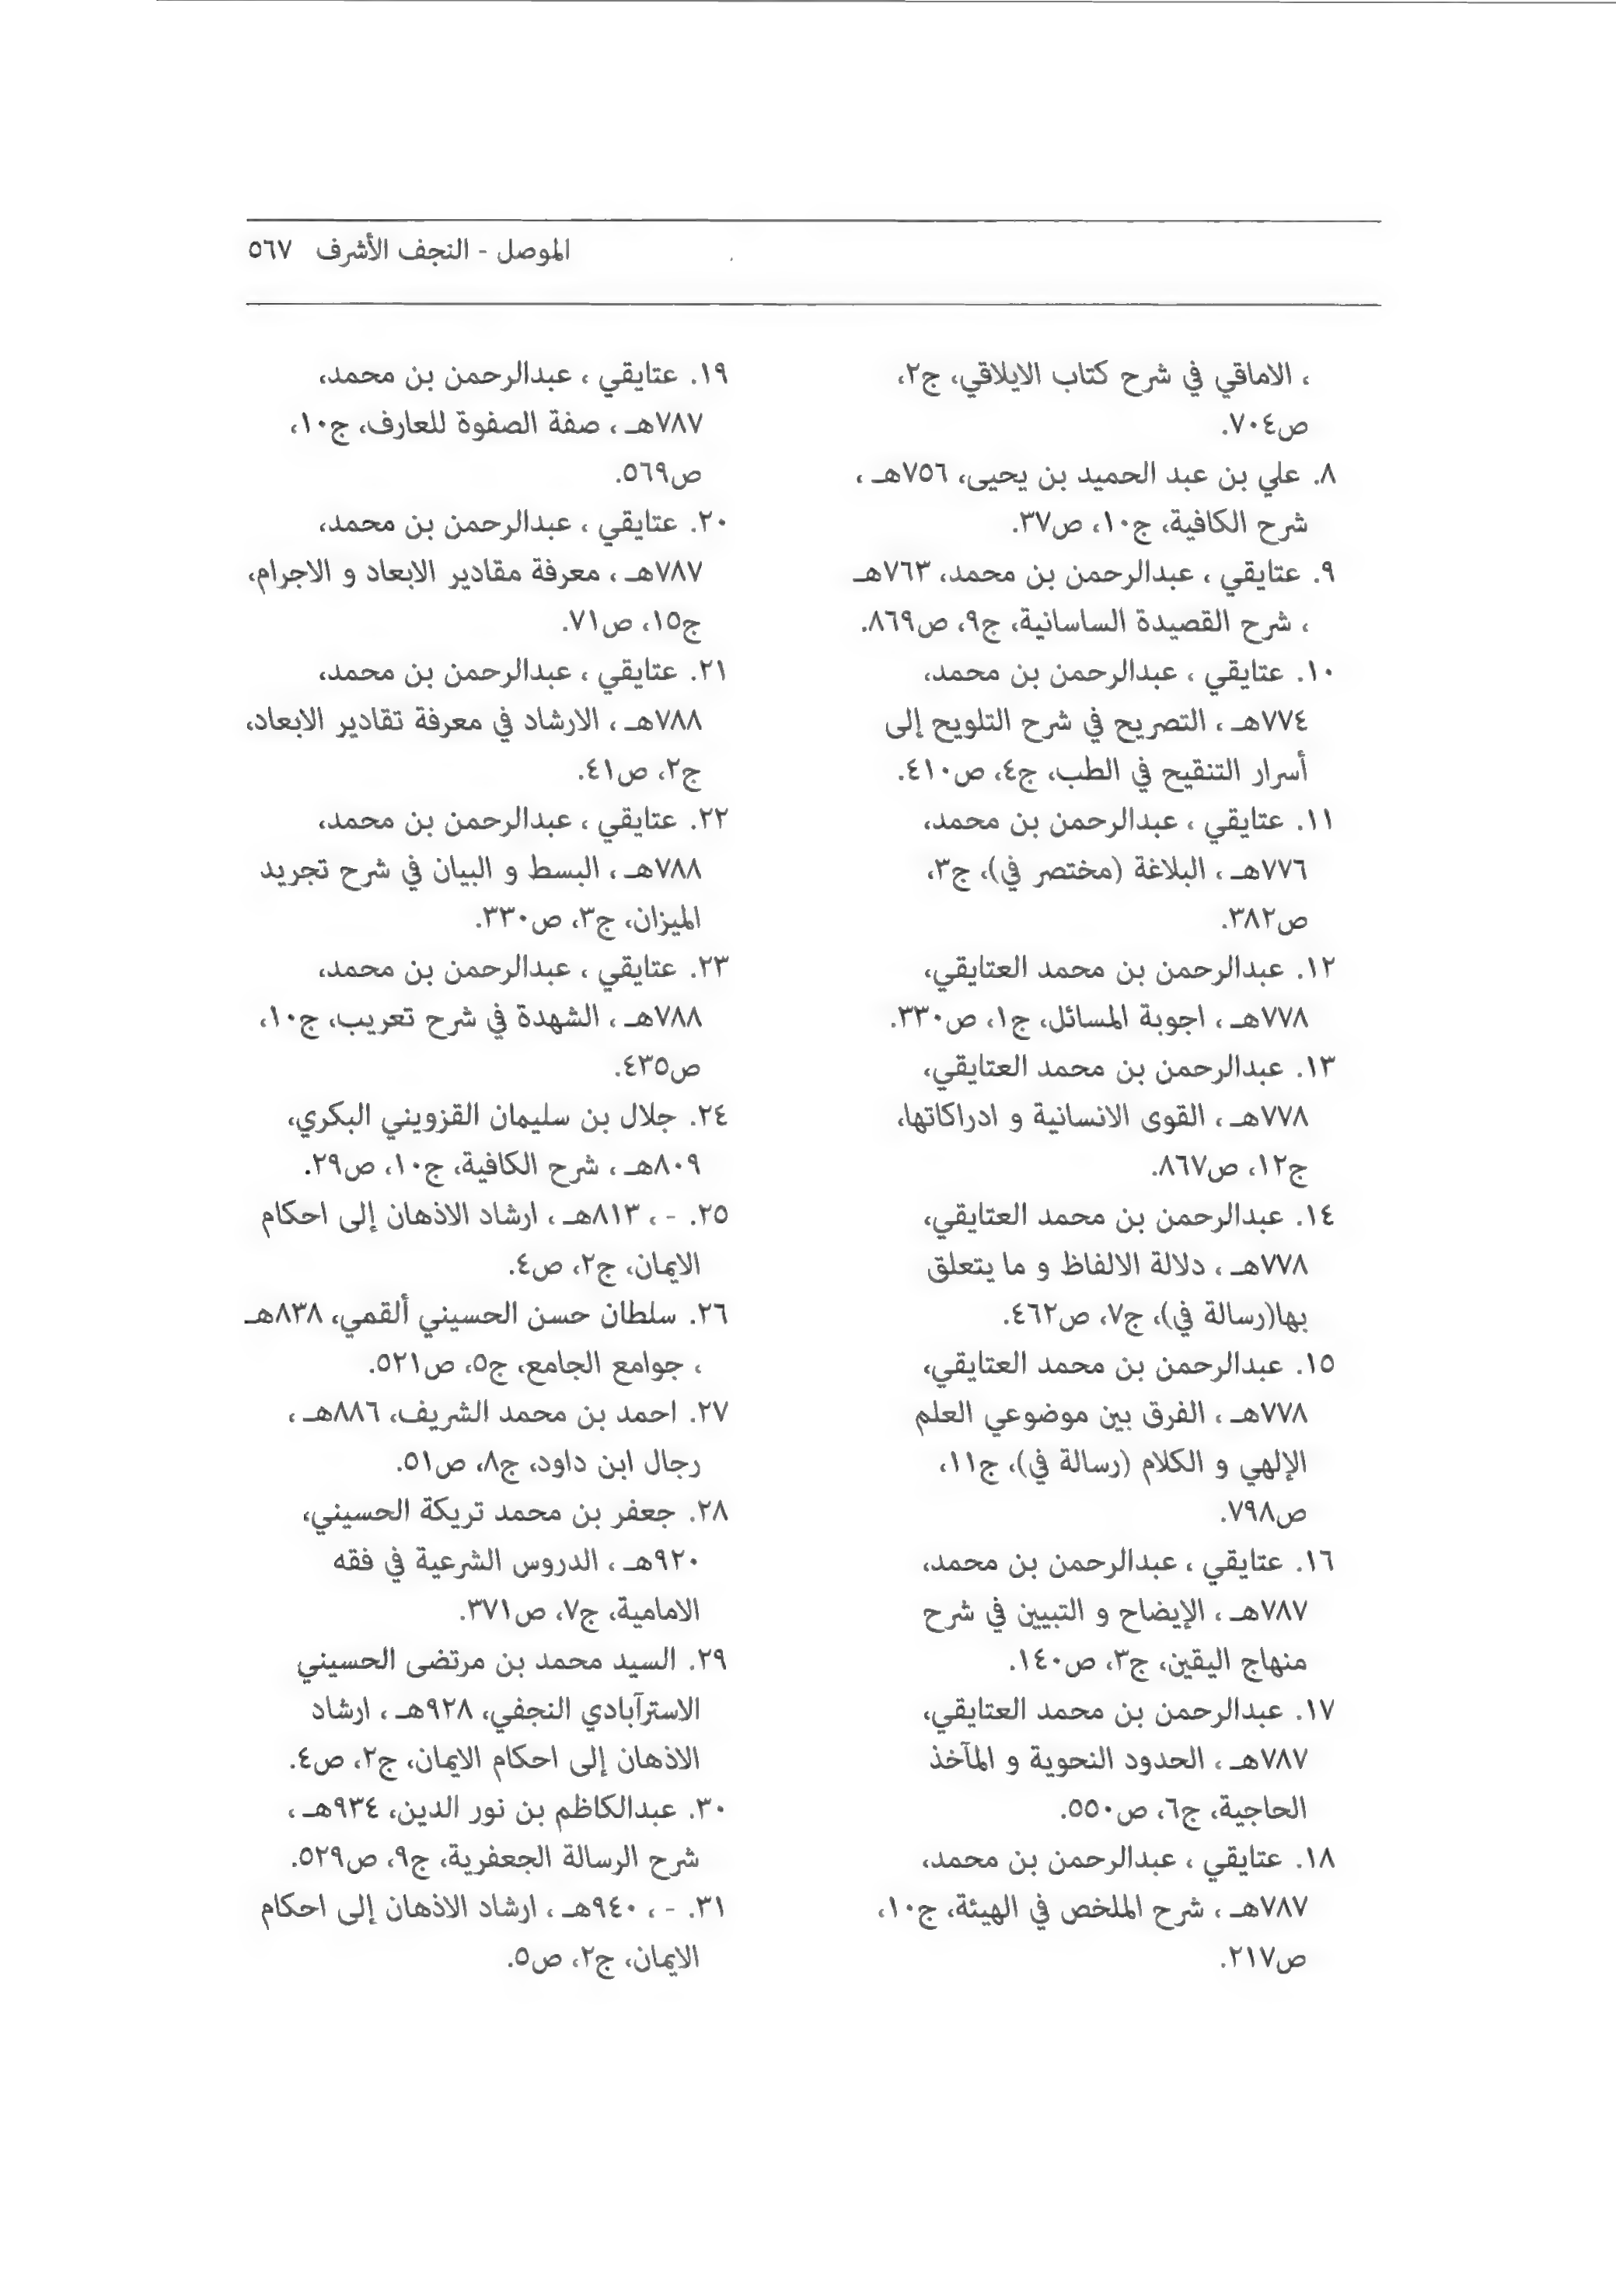 الموصل - النجف الأشرف ٥٦٧
، الاماقي في شرح كتاب الايلاقي، ج٢،
ص٧٠٤.
٨. علي بن عبد الحميد بن يحيى، ٧٥٦هـ ،
شرح الكافية، ج١٠، ص٣٧.
٩. عتايقي ، عبدالرحمن بن محمد، ٧٦٣هـ
، شرح القصيدة الساسانية، ج٩، ص٨٦٩.
١٠. عتايقي ، عبدالرحمن بن محمد،
٧٧٤هـ ، التصريح في شرح التلويح إلى
أسرار التنقيح في الطب، ج٤، ص٤١٠.
١١. عتايقي ، عبدالرحمن بن محمد،
٧٧٦هـ ، البلاغة (مختصر في)، ج٣،
ص٣٨٢.
١٢. عبدالرحمن بن محمد العتايقي،
٧٧٨هـ ، اجوبة المسائل، ج١، ص٣٣٠.
١٣. عبدالرحمن بن محمد العتايقي،
٧٧٨هـ ، القوى الانسانية و ادراكاتها،
ج١٢، ص٨٦٧.
١٤. عبدالرحمن بن محمد العتايقي،
٧٧٨هـ ، دلالة الالفاظ و ما يتعلق
بها(رسالة في)، ج٧، ص٤٦٢.
١٥. عبدالرحمن بن محمد العتايقي،
٧٧٨هـ ، الفرق بين موضوعي العلم
الإلهي و الكلام (رسالة في)، ج١١،
ص٧٩٨.
١٦. عتايقي ، عبدالرحمن بن محمد،
٧٨٧هـ ، الإيضاح و التبيين في شرح
منهاج اليقين، ج٣، ص١٤٠.
١٧. عبدالرحمن بن محمد العتايقي،
٧٨٧هـ ، الحدود النحوية و المآخذ
الحاجية، ج٦، ص٥٥٠.
١٨. عتايقي ، عبدالرحمن بن محمد،
٧٨٧هـ ، شرح الملخص في الهيئة، ج١٠،
ص٢١٧.
١٩. عتايقي ، عبدالرحمن بن محمد،
٧٨٧هـ ، صفة الصفوة للعارف، ج١٠،
ص٥٦٩.
٢٠. عتايقي ، عبدالرحمن بن محمد،
٧٨٧هـ ، معرفة مقادير الابعاد و الاجرام،
ج١٥، ص٧١.
٢١. عتايقي ، عبدالرحمن بن محمد،
٧٨٨هـ ، الارشاد في معرفة تقادير الابعاد،
ج٢، ص٤١.
٢٢. عتايقي ، عبدالرحمن بن محمد،
٧٨٨هـ ، البسط و البيان في شرح تجريد
الميزان، ج٣، ص٣٣٠.
٢٣. عتايقي ، عبدالرحمن بن محمد،
٧٨٨هـ ، الشهدة في شرح تعريب، ج١٠،
ص٤٣٥.
٢٤. جلال بن سليمان القزويني البكري،
٨٠٩هـ ، شرح الكافية، ج١٠، ص٢٩.
٢٥. - ، ٨١٣هـ ، ارشاد الاذهان إلى احكام
الايمان، ج٢، ص٤.
٢٦. سلطان حسن الحسيني ألقمي، ٨٣٨هـ
، جوامع الجامع، ج٥، ص٥٢١.
٢٧. احمد بن محمد الشريف، ٨٨٦هـ ،
رجال ابن داود، ج٨، ص٥١.
٢٨. جعفر بن محمد تريكة الحسيني،
٩٢٠هـ ، الدروس الشرعية في فقه
الامامية، ج٧، ص٣٧١.
٢٩. السيد محمد بن مرتضى الحسيني
الاسترآبادي النجفي، ٩٢٨هـ ، ارشاد
الاذهان إلى احكام الايمان، ج٢، ص٤.
٣٠. عبدالكاظم بن نور الدين، ٩٣٤هـ ،
شرح الرسالة الجعفرية، ج٩، ص٥٢٩.
٣١. - ، ٩٤٠هـ ، ارشاد الاذهان إلى احكام
الايمان، ج٢، ص٥.